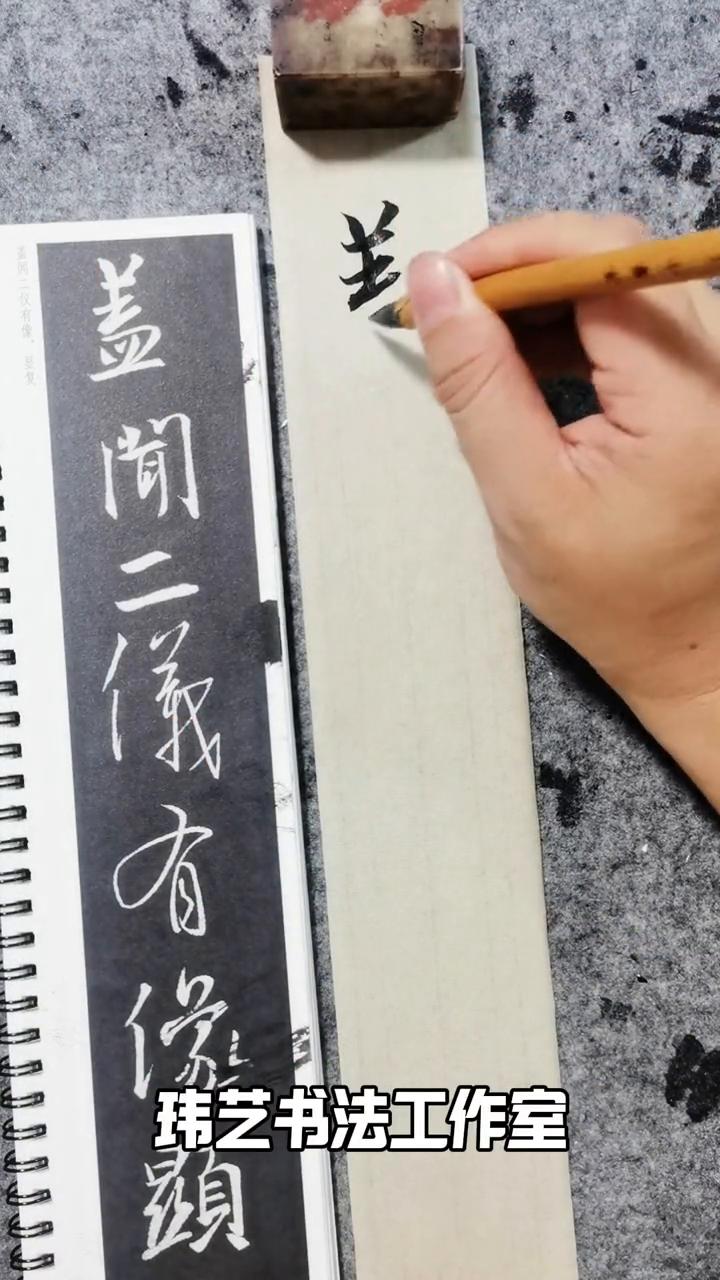 盖闻二仪有像，显复
盖
闻
二
儀
有
像
顯
玮艺书法工作室